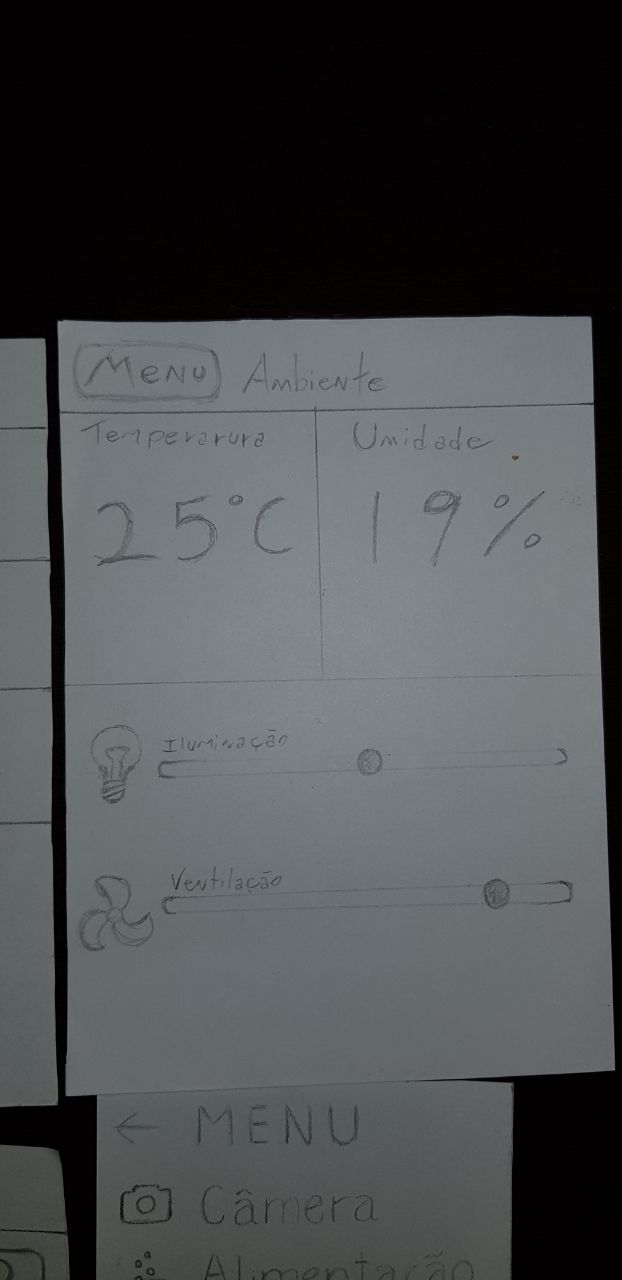 Menu Ambiente
Temperarura Umidade
25°C 19%
Iluminação
Ventilação
← MENU
Câmera
Alimentação